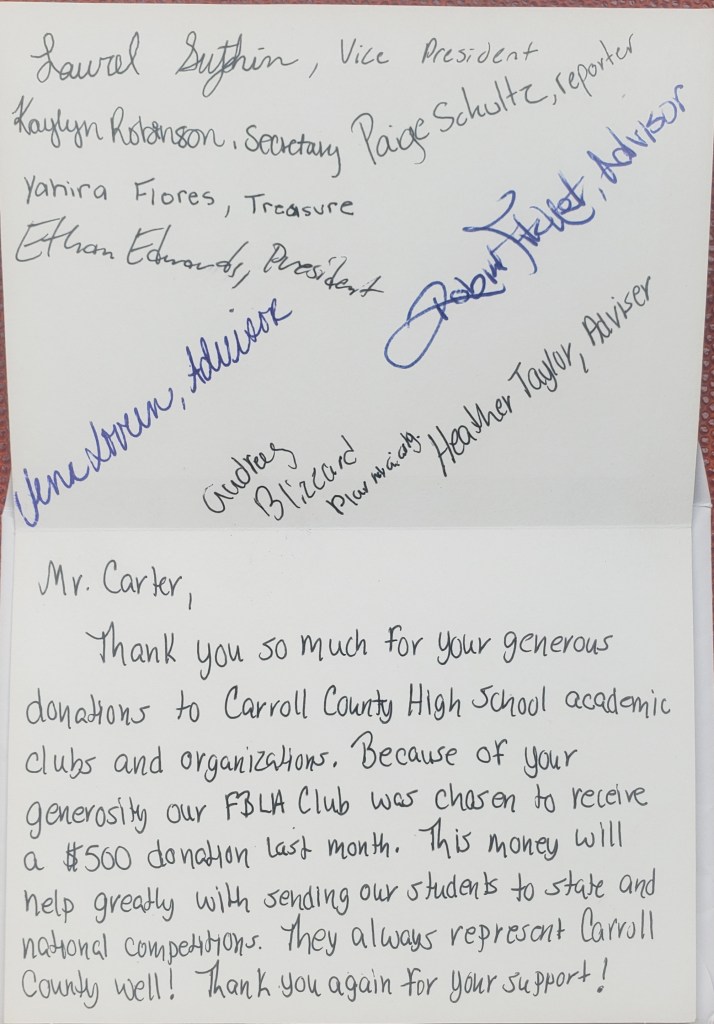 Laurel Suthin, Vice President
Kaylyn Robinson, Secretary
Paige Schultz, reporter
Yahira Flores, Treasure
Ethan Edwards, President
Advisor
Jena Lovein, Advisor
Heather Taylor, Adviser
Audrey
Blizzard
Mr. Carter,
Thank you so much for your generous
donations to Carroll County High School academic
clubs and organizations. Because of your
generosity our FBLA Club was chosen to receive
a $500 donation last month. This money will
help greatly with sending our students to state and
national competitions. They always represent Carroll
County well! Thank you again for your support!